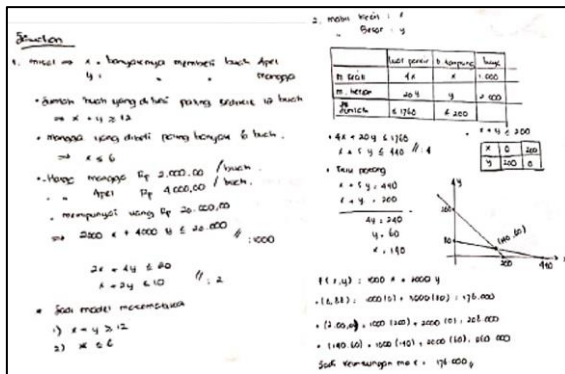 Jawaban
1. misal ⇒ x = banyaknya membeli buah Apel
y = " " " mangga
• Jumlah buah yang dibeli paling sedikit 12 buah
⇒ x + y ≥ 12
• mangga yang dibeli paling banyak 6 buah.
⇒ x ≤ 6
• Harga mangga Rp 2.000,00 / buah.
" Apel Rp 4.000,00 / buah.
• mempunyai uang Rp 20.000,00
⇒ 2000 x + 4000 y ≤ 20.000 // : 1000
2x + 4y ≤ 20
x + 2y ≤ 10 // : 2
* Jadi model matematika
1) x + y ≥ 12
2) x ≤ 6
2. mobil kecil : x
" Besar : y
luas parkir
1.000
20 y y 2.000
Jumlah ≤ 1760 ≤ 200
• 4x + 20y ≤ 1760
x + 5y ≤ 440 // : 4
• x + y ≤ 200
x 0 200
y 200 0
• Titik potong
x + 5y = 440
x + y = 200
4y = 240
y = 60
x = 140
y
200
(140,60)
200 440
f(x,y) : 1000 x + 2000 y
• (0,88) : 1000 (0) + 2000 (88) : 176.000
• (200,0) : 1000 (200) + 2000 (0) :
• (140,60) :
Jadi keuntungan max = 176.000,